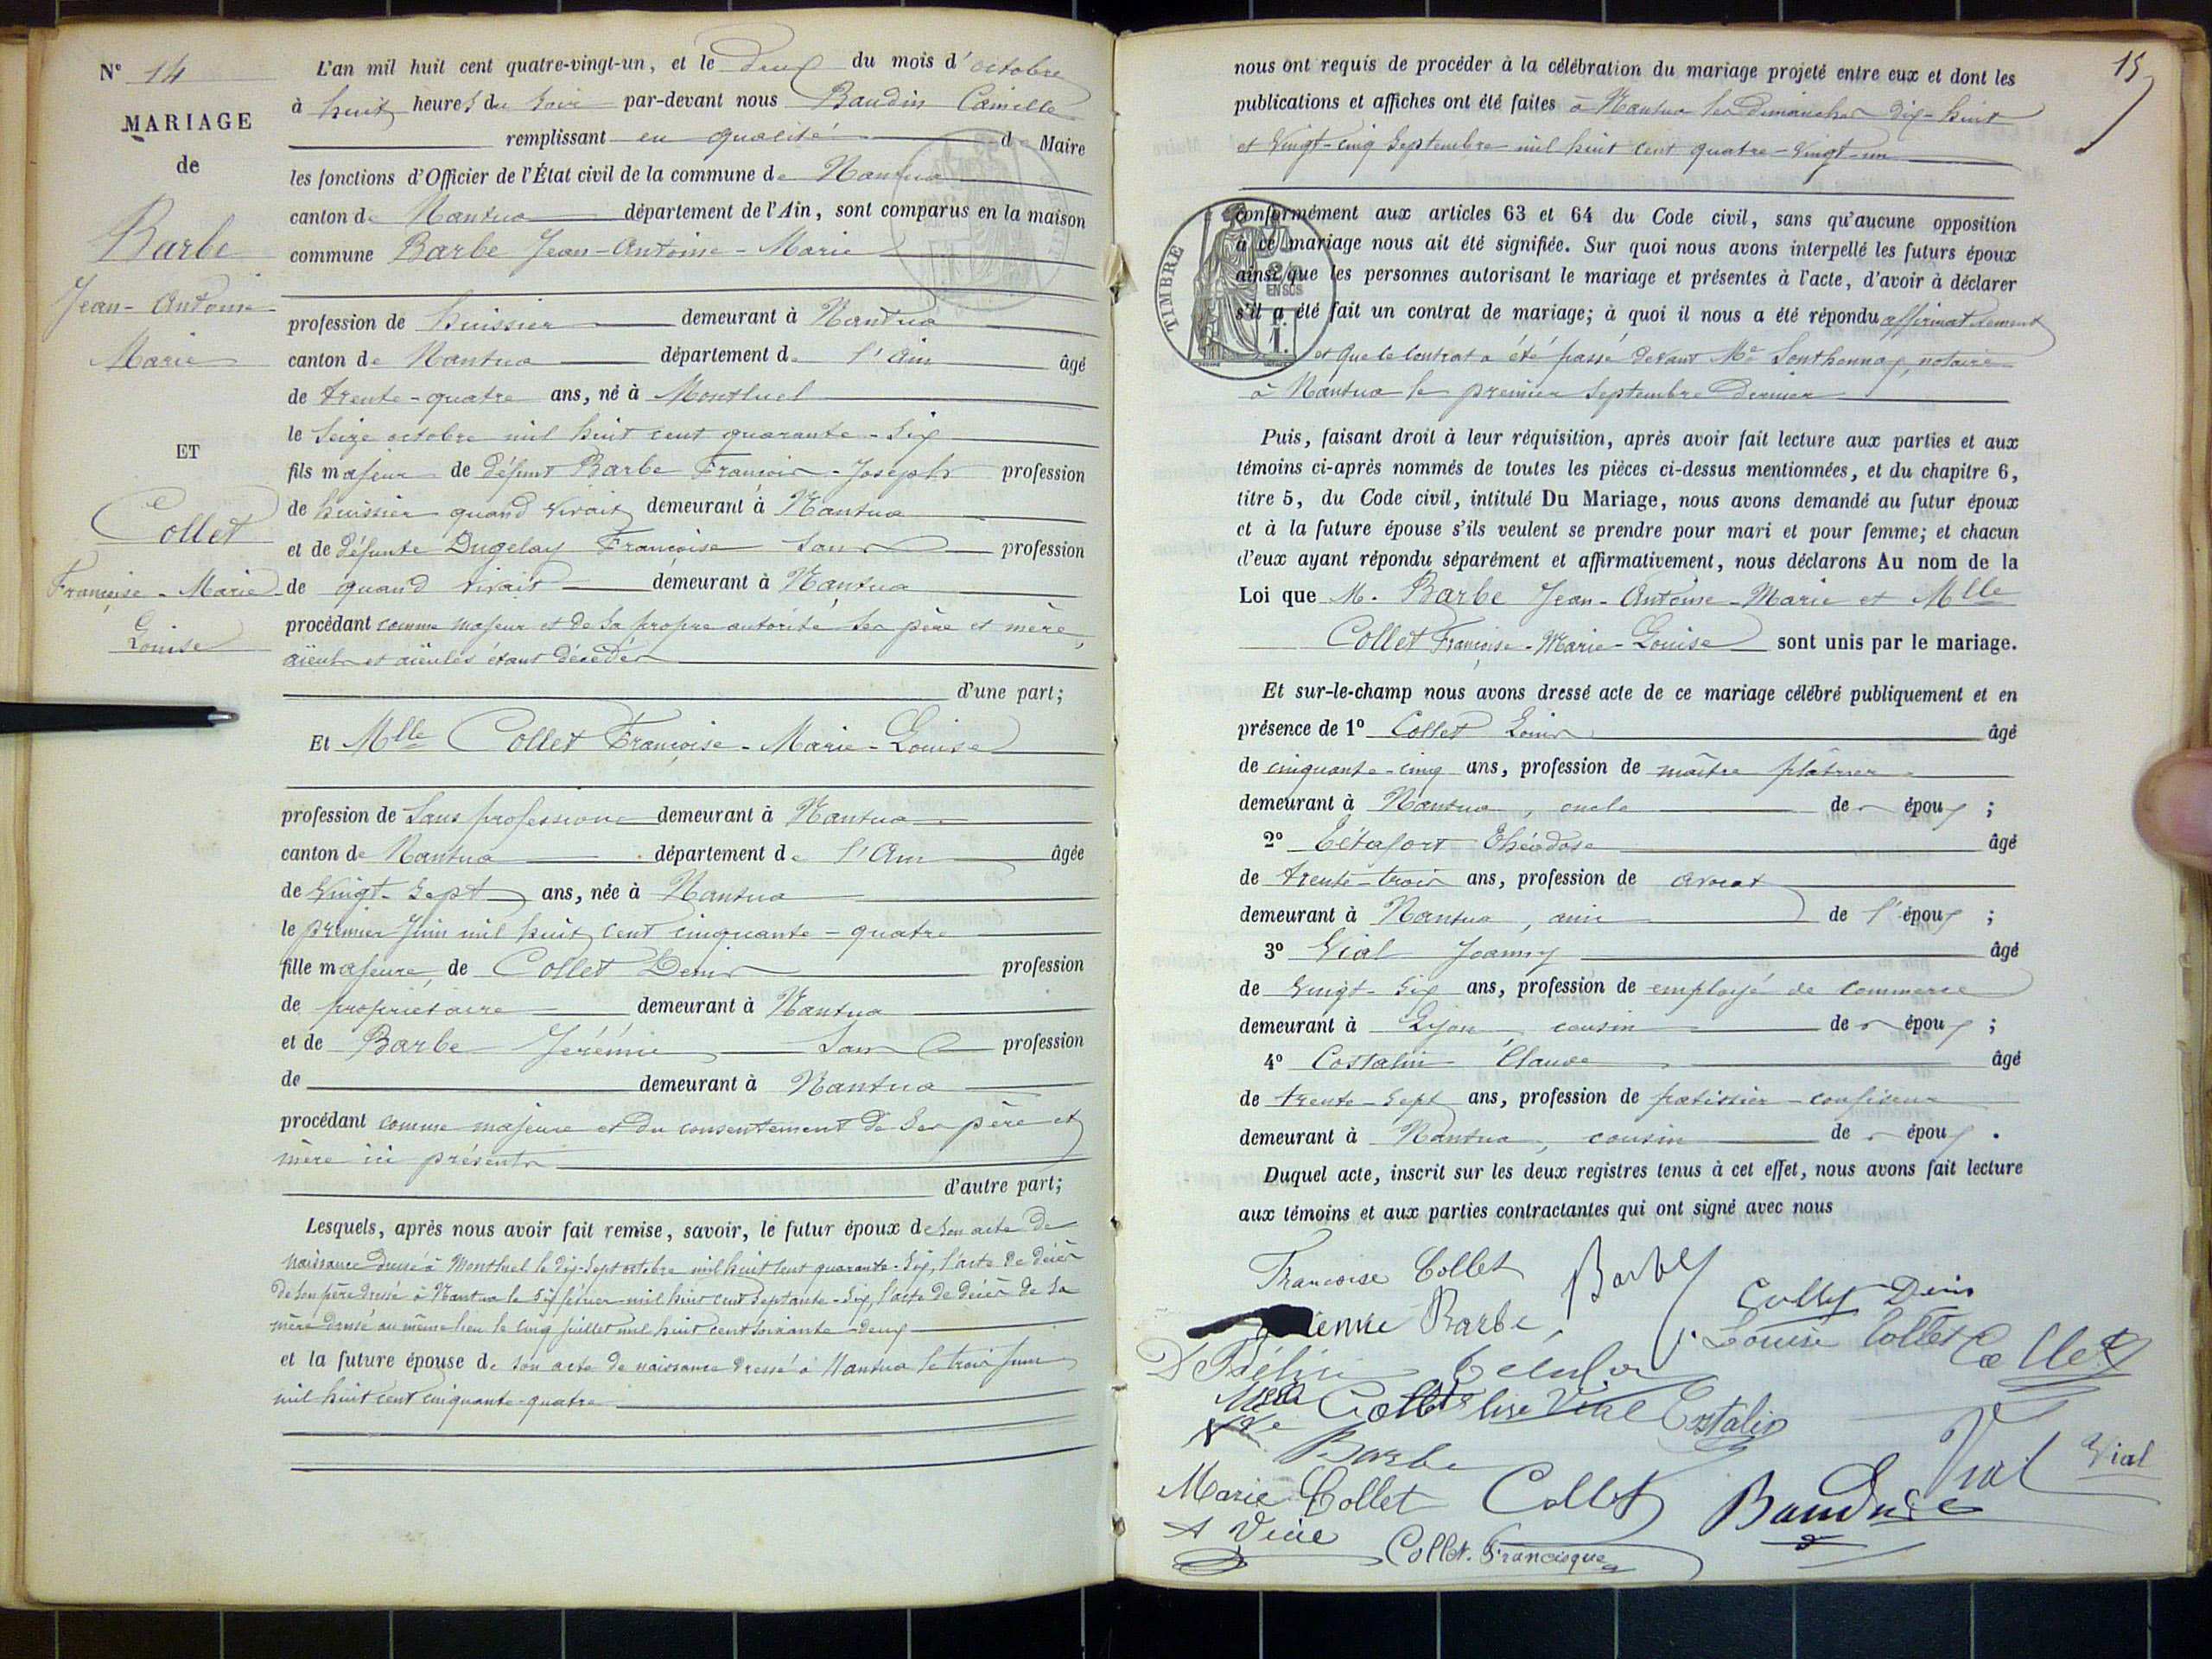 N° 14
MARIAGE
de
Barbe
Jean-Antoine
Marie
ET
Collet
Françoise-Marie
Louise
L'an mil huit cent quatre-vingt-un, et le deux du mois d'octobre
à huit heures du soir par-devant nous Baudin Camille
remplissant en qualité de Maire
les fonctions d'Officier de l'État civil de la commune de Nantua
canton de Nantua département de l'Ain, sont comparus en la maison
commune Barbe Jean-Antoine-Marie
profession de huissier demeurant à Nantua
canton de Nantua département de l'Ain âgé
de trente-quatre ans, né à Montluel
le seize octobre mil huit cent quarante-six
fils majeur de défunt Barbe François-Joseph profession
de huissier quand vivait demeurant à Nantua
et de défunte Dugelay Françoise sans profession
de quand vivait demeurant à Nantua
procédant comme majeur et de sa propre autorité ses père et mère,
aïeuls et aïeules étant décédés
d'une part;
Et Mlle Collet Françoise-Marie-Louise
profession de sans profession demeurant à Nantua
canton de Nantua département de l'Ain âgée
de vingt-sept ans, née à Nantua
le premier juin mil huit cent cinquante-quatre
fille majeure de Collet Denis profession
de propriétaire demeurant à Nantua
et de Barbe Jérémie sans profession
de demeurant à Nantua
procédant comme majeure et du consentement de ses père et
mère ici présents
d'autre part;
Lesquels, après nous avoir fait remise, savoir, le futur époux de son acte de
naissance dressé à Montluel le dix-sept octobre mil huit cent quarante-six, l'acte de décès
de son père dressé à Nantua le six février mil huit cent septante-six, l'acte de décès de sa
mère dressé au même lieu le cinq juillet mil huit cent soixante-deux
et la future épouse de son acte de naissance dressé à Nantua le trois juin
mil huit cent cinquante-quatre
15
nous ont requis de procéder à la célébration du mariage projeté entre eux et dont les
publications et affiches ont été faites à Nantua les dimanches dix-huit
et vingt-cinq septembre mil huit cent quatre-vingt-un
conformément aux articles 63 et 64 du Code civil, sans qu'aucune opposition
à ce mariage nous ait été signifiée. Sur quoi nous avons interpellé les futurs époux
ainsi que les personnes autorisant le mariage et présentes à l'acte, d'avoir à déclarer
s'il a été fait un contrat de mariage; à quoi il nous a été répondu affirmativement
et que le contrat a été passé devant Me Sonthonnax, notaire
à Nantua le premier septembre dernier
TIMBRE
EN SUS
Puis, faisant droit à leur réquisition, après avoir fait lecture aux parties et aux
témoins ci-après nommés de toutes les pièces ci-dessus mentionnées, et du chapitre 6,
titre 5, du Code civil, intitulé Du Mariage, nous avons demandé au futur époux
et à la future épouse s'ils veulent se prendre pour mari et pour femme; et chacun
d'eux ayant répondu séparément et affirmativement, nous déclarons Au nom de la
Loi que M. Barbe Jean-Antoine-Marie et Mlle
Collet Françoise-Marie-Louise sont unis par le mariage.
Et sur-le-champ nous avons dressé acte de ce mariage célébré publiquement et en
présence de 1° Collet Louis âgé
de cinquante-cinq ans, profession de maître plâtrier
demeurant à Nantua, oncle des époux;
2° Théodose âgé
de trente-trois ans, profession de avocat
demeurant à Nantua, ami de l'époux;
3° Vial Joanny âgé
de vingt-six ans, profession de employé de commerce
demeurant à Lyon, cousin des époux;
4° Costalin Claude âgé
de trente-sept ans, profession de patissier-confiseur
demeurant à Nantua, cousin des époux.
Duquel acte, inscrit sur les deux registres tenus à cet effet, nous avons fait lecture
aux témoins et aux parties contractantes qui ont signé avec nous
Francoise Collet Barbe
Barbe Collet Denis
Louise Collet Collet
Collet Vial Costalin
Barbe Vial Vial
Marie Collet Collet
Collet Francisque